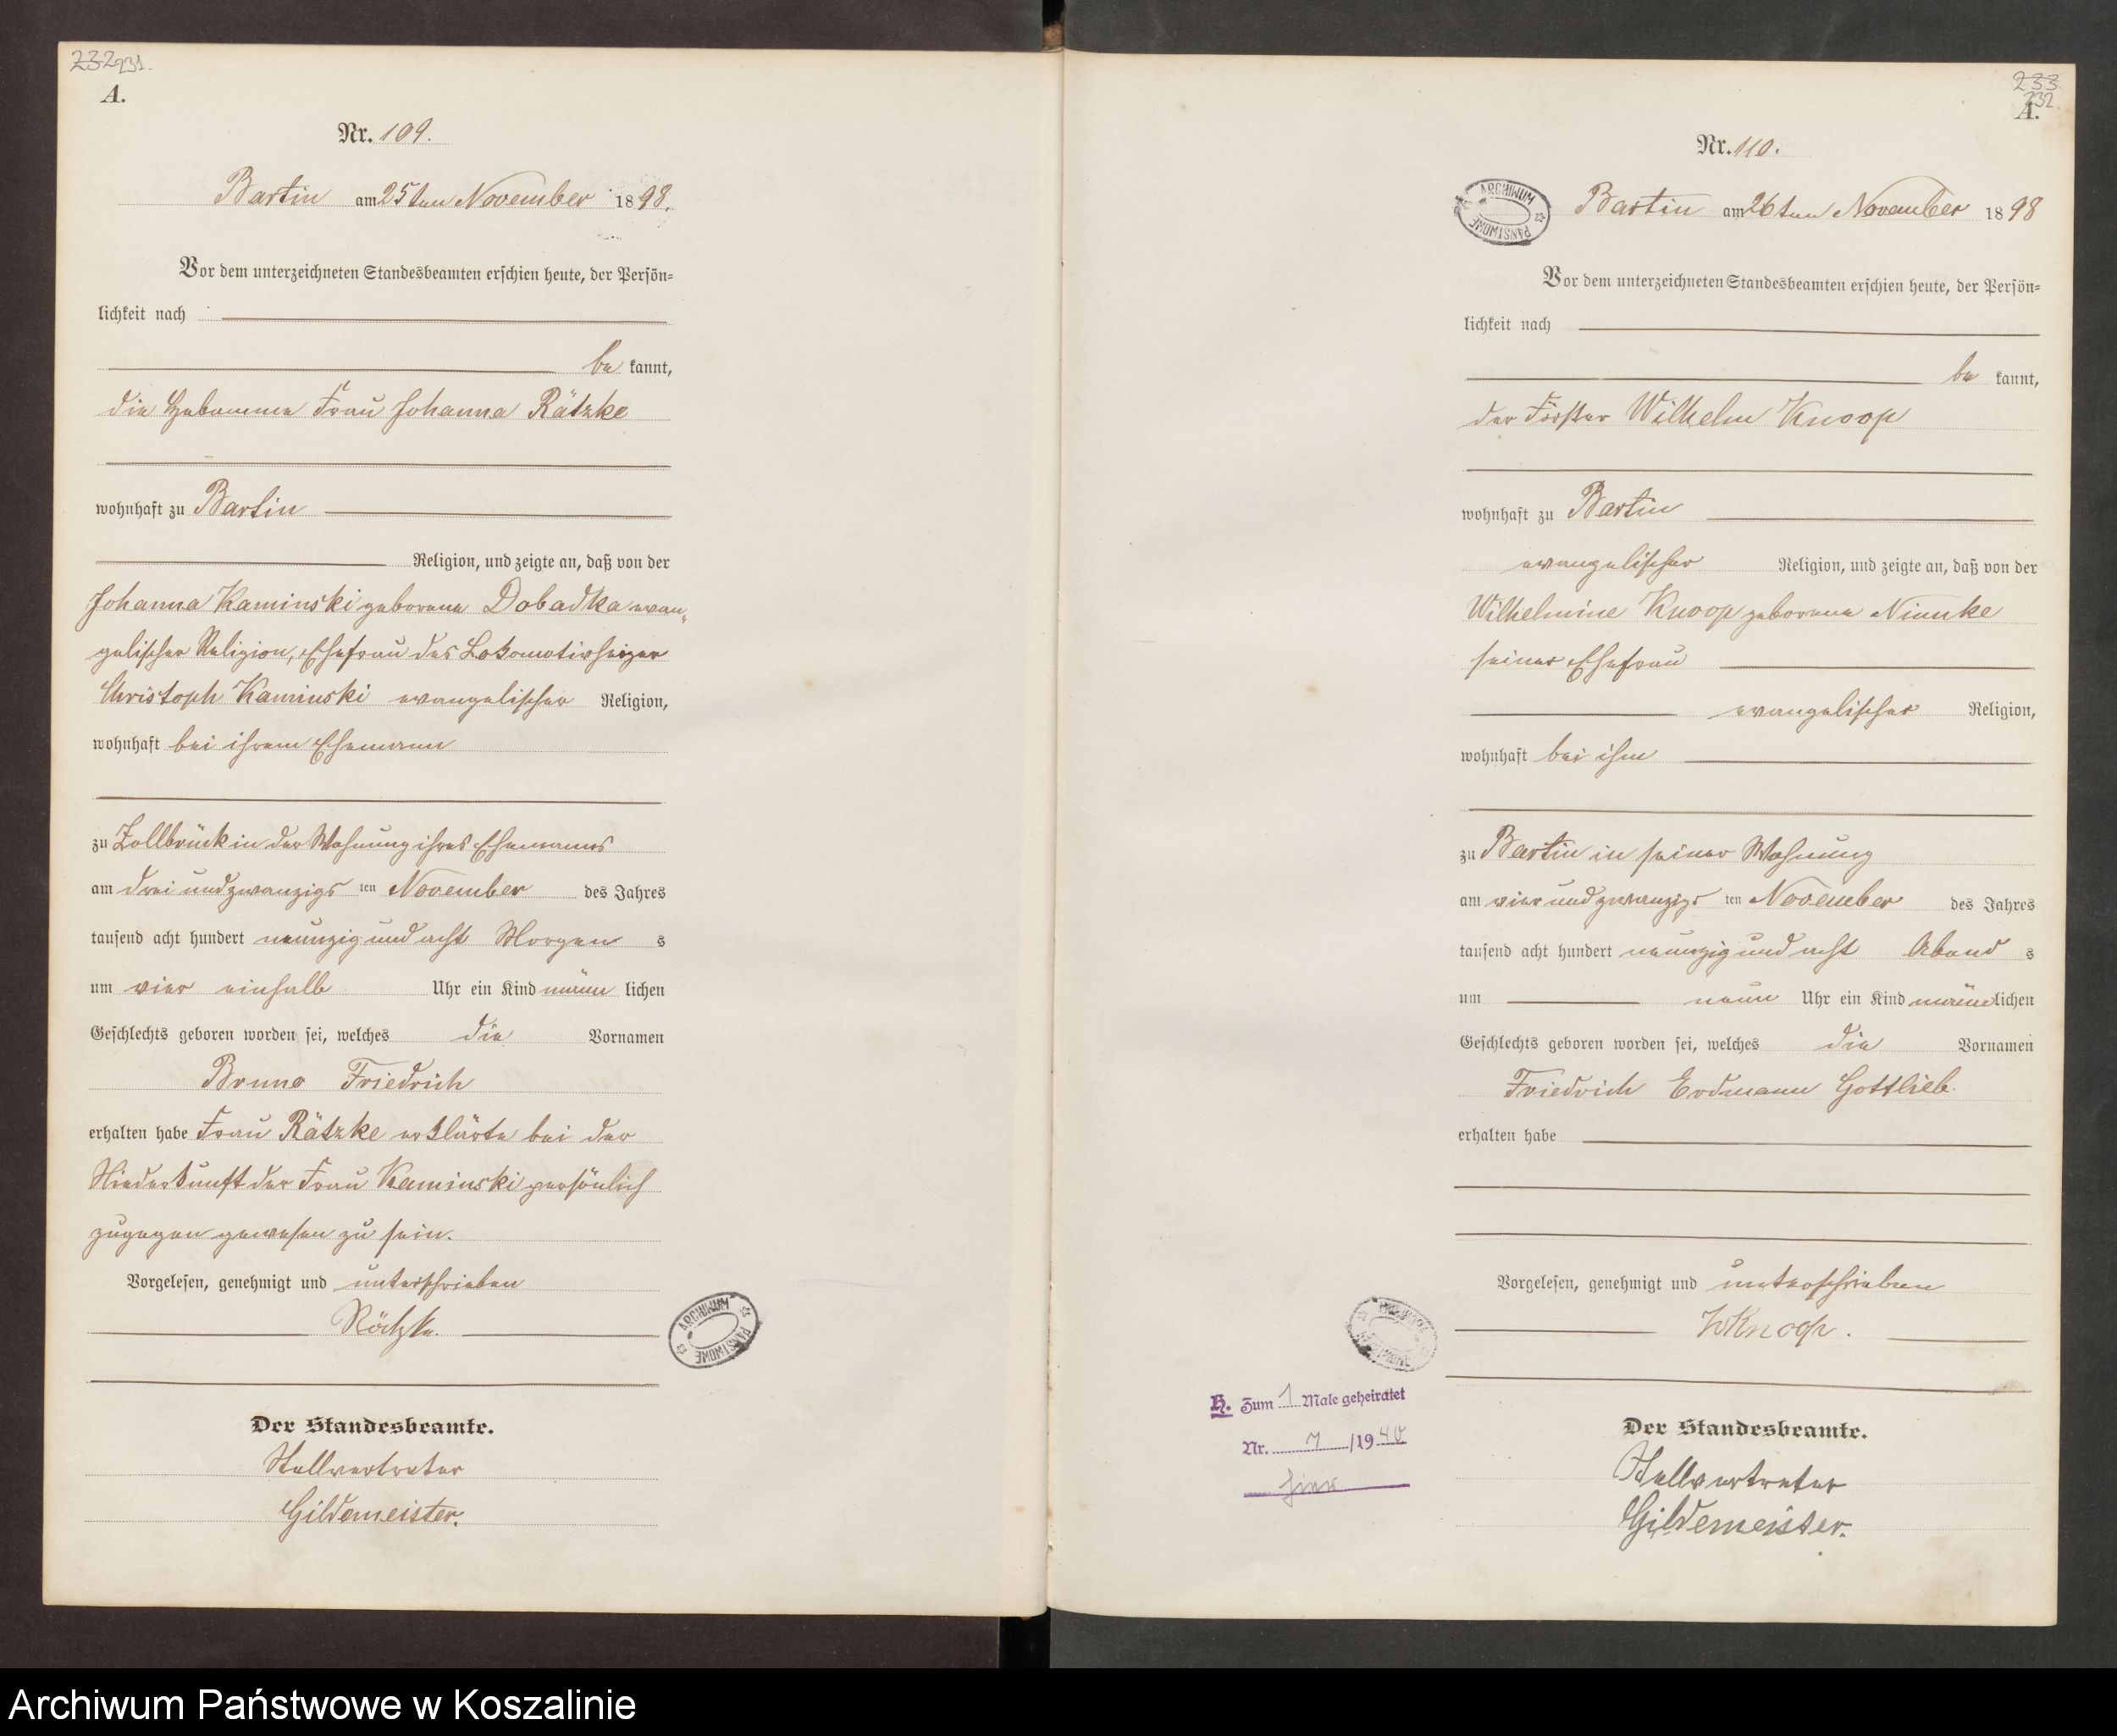 232 231.
A.
Nr. 109.
Bartin am 25ten November 1898.
Vor dem unterzeichneten Standesbeamten erschien heute, der Persön=
lichkeit nach
be kannt,
die Hebamme Frau Johanna Rätzke
wohnhaft zu Bartin
Religion, und zeigte an, daß von der
Johanna Kaminski geborene Dobadka evan„
gelischer Religion, Ehefrau des Lokomotivheizer
Christoph Kaminski evangelischer Religion,
wohnhaft bei ihrem Ehemann
zu Zollbrück in der Wohnung ihres Ehemannes
am drei und zwanzigs ten November des Jahres
tausend acht hundert neunzig und acht Morgen s
um vier einhalb Uhr ein Kind männ lichen
Geschlechts geboren worden sei, welches die Vornamen
Bruno Friedrich
erhalten habe Frau Rätzke erklärte bei der
Niederkunft der Frau Kaminski persönlich
zugegen gewesen zu sein.
Vorgelesen, genehmigt und unterschrieben
Rätzke.
ARCHIWUM PAŃSTWOWE
Der Standesbeamte.
Stellvertreter
Gildemeister.
233
232
A.
Nr. 110.
ARCHIWUM PAŃSTWOWE
Bartin am 26ten November 1898
Vor dem unterzeichneten Standesbeamten erschien heute, der Persön=
lichkeit nach
be kannt,
der Förster Wilhelm Knoop
wohnhaft zu Bartin
evangelischer Religion, und zeigte an, daß von der
Wilhelmine Knoop geborene Nimke
seiner Ehefrau
evangelischer Religion,
wohnhaft bei ihm
zu Bartin in seiner Wohnung
am vier und zwanzigs ten November des Jahres
tausend acht hundert neunzig und acht Abend s
um neun Uhr ein Kind männ lichen
Geschlechts geboren worden sei, welches die Vornamen
Friedrich Erdmann Gottlieb
erhalten habe
Vorgelesen, genehmigt und unterschrieben
WKnoop.
H. Zum 1 Male geheiratet
Nr. 7 /1940
Der Standesbeamte.
Stellvertreter
Gildemeister.
Archiwum Państwowe w Koszalinie